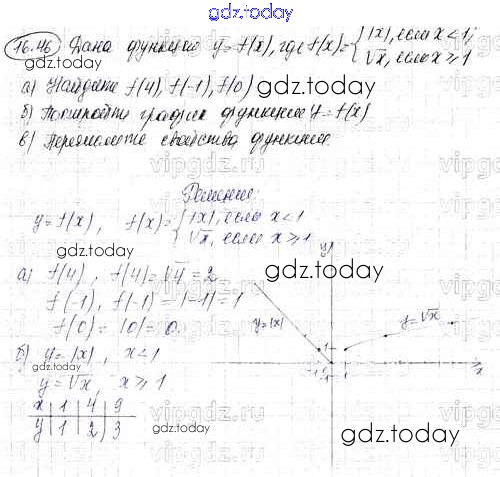 gdz.today
16.46 Дана функция y=f(x), где f(x)={|x|, если x<1; √x, если x⩾1
а) Найдите f(4), f(-1), f(0)
gdz.today
б) Постройте график функции y=f(x)
в) Перечислите свойства функции.
Решение:
y=f(x), f(x)={|x|, если x<1 √x, если x⩾1
gdz.today
а) f(4), f(4)=√4=2
f(-1), f(-1)=|-1|=1
f(0)=|0|=0
б) y=|x|, x<1
gdz.today
y=√x, x⩾1
x | 1 | 4 | 9
y | 1 | 2 | 3
gdz.today
y
gdz.today
y=|x|
y=√x
1
-1
1
x
gdz.today
vipgdz